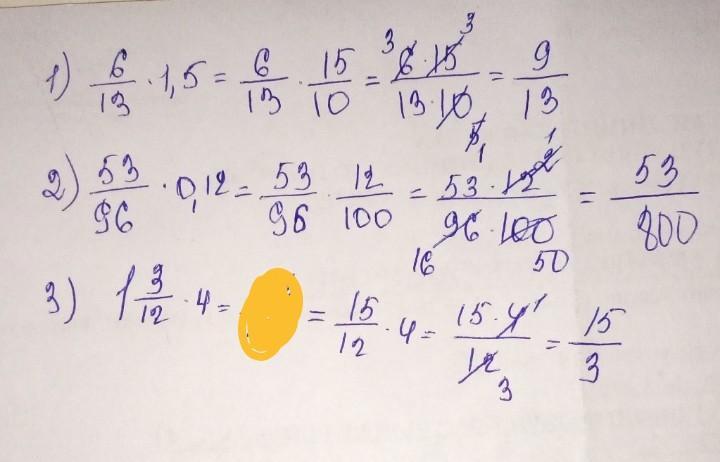 1) 6/13 · 1,5 = 6/13 · 15/10 = 3 6 · 15 3 / 13 · 10 5 1 = 9/13
2) 53/96 · 0,12 = 53/96 · 12/100 = 53 · 12 2 1 / 96 · 100 16 50 = 53/800
3) 1 3/12 · 4 = = 15/12 · 4 = 15 · 4 1 / 12 3 = 15/3